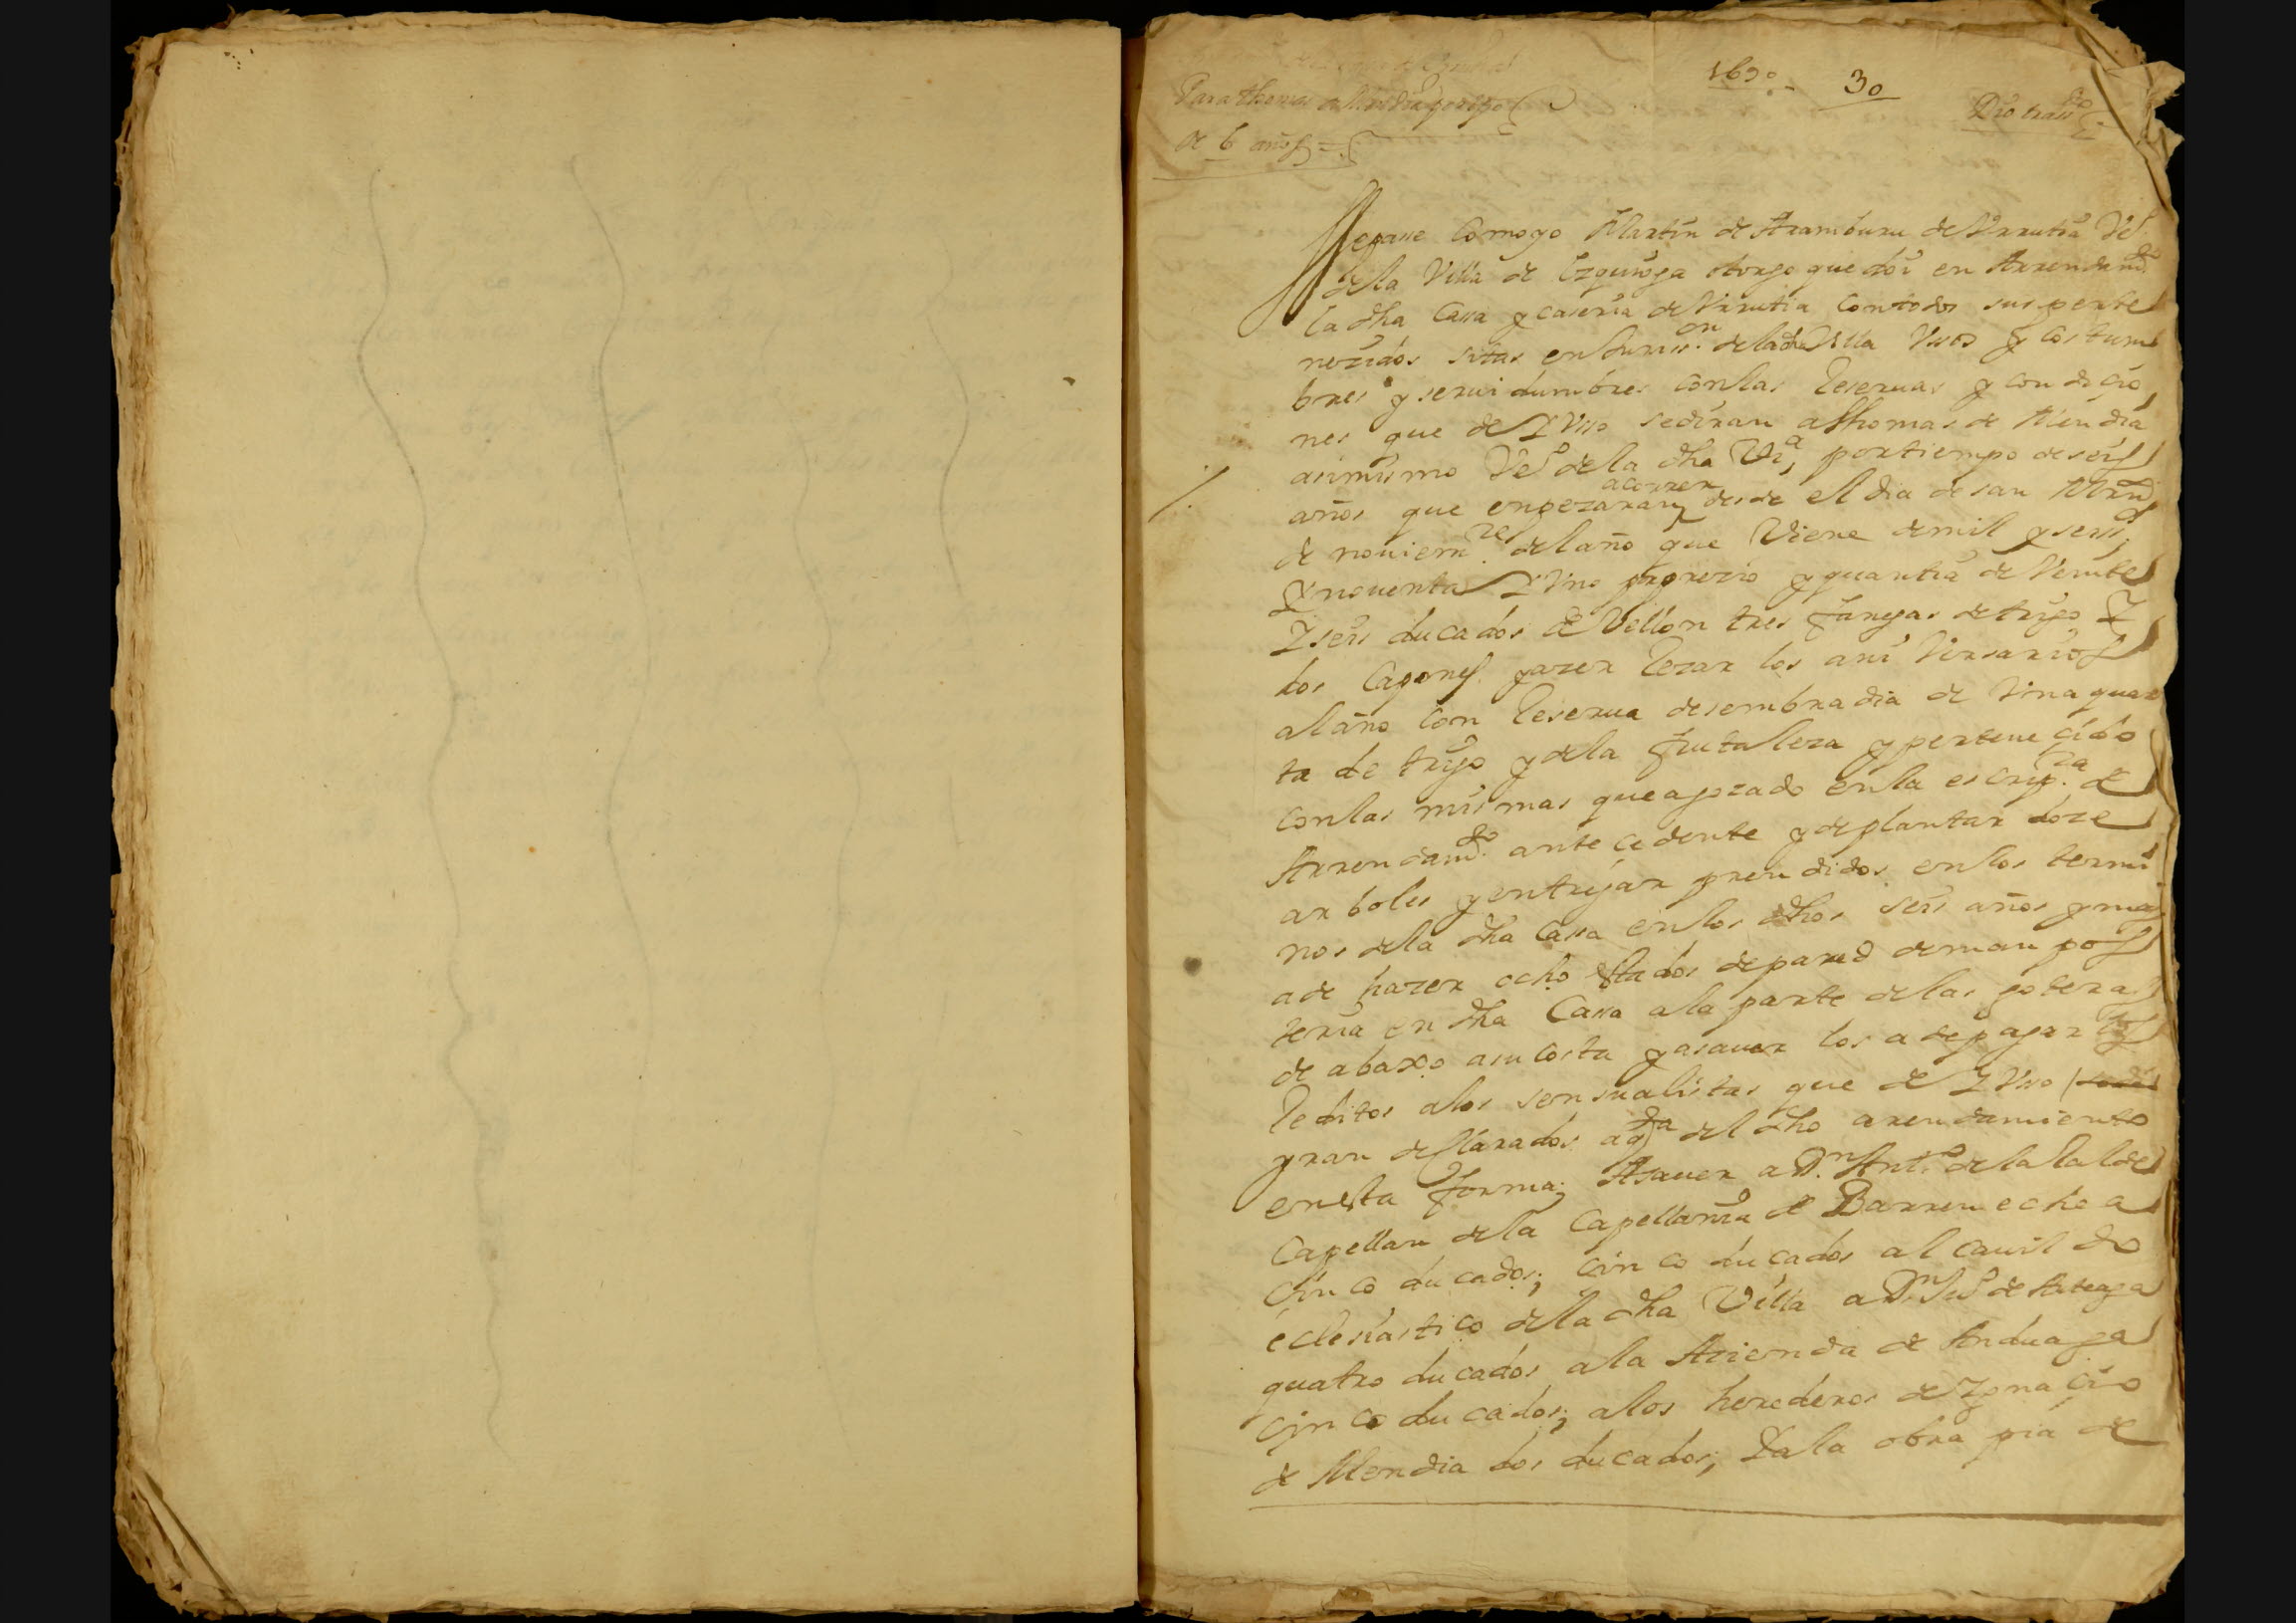 1690. 30
Para thomas de Mendia por tpo
de 6 años
Dio tras.do
Sepasse Como yo Martin de Aramburu de Vrrutia Vº
de la Villa de Ezquioga otorgo que doi en Arrendam.to
la dha Cassa y caseria de Vrrutia con todos sus perte
nezidos sitas en Juris.on de la dha Villa Vsos y costum
bres y seruidumbres con las Reseruas y condicio
nes que de Yuso se diran a Thomas de Mendia
asimismo Vº de la dha Vi.a, por tiempo de seis
años que enpezaran a correr desde el dia de san Mrn
de nouiem.re del año que Viene de mil y seis.os
Y nouenta Y Vno por prezio y quantia de Veinte
Y seis ducados de Vellon tres fanegas de trigo Y
dos Capones y azer Rezar los aniversarios
al año con Reserua de sembradia de Vna quar
ta de trigo y de la frutaleza y pertenecido
con las mismas que a gozado en la escrip.ra de
Arrendam.to antecedente y de plantar doze
arboles y entregar prendidos en los termi
nos de la dha Cassa en los dhos seis años y mas
a de hazer ocho estados de pared de manpos
teria en dha Cassa a la parte de las goteras
de abaxo a su costa y asauer los a de pagar los
Reditos a los sensualistas que de Yuso
yran declarados a q.ta del dho arendamiento
en esta forma; Asauer a D.n Ant.o de la lalde
Capellan de la Capellania de Barrenechea
Cinco ducados; cinco ducados al cauildo
eclesiastico de la dha Villa a D.n de Arteaga
quatro ducados a la Azienda de Anduaga
cinco ducados; a los herederos de Ygnacio
de Mendia dos ducados; Y a la obra pia de